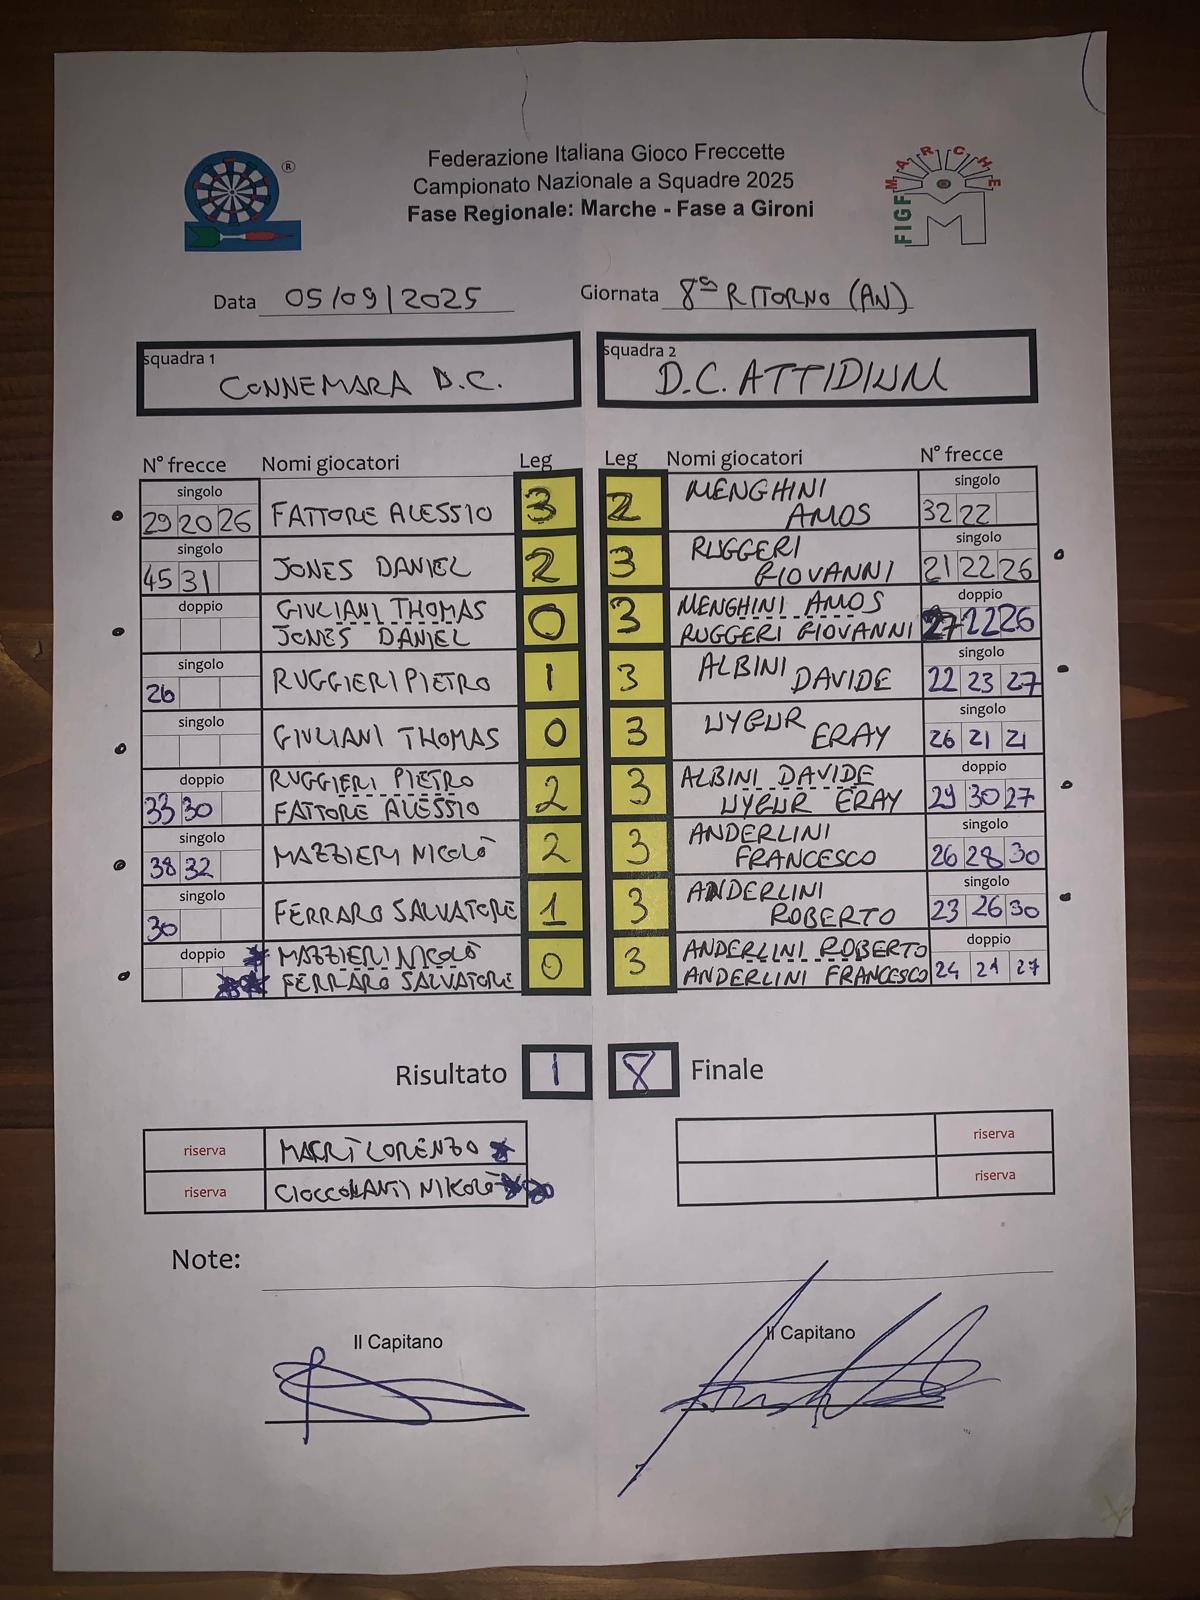 Federazione Italiana Gioco Freccette
Campionato Nazionale a Squadre 2025
Fase Regionale: Marche - Fase a Gironi
®
MARCHE
FIGF
M
Data 05/09/2025
Giornata 8ª RITORNO (AN)
squadra 1
CONNEMARA D.C.
squadra 2
D.C. ATTIDIUM
N° frecce Nomi giocatori Leg Leg Nomi giocatori N° frecce
singolo MENGHINI singolo
29 20 26 FATTORE ALESSIO 3 2 AMOS 32 22
singolo RUGGERI singolo
45 31 JONES DANIEL 2 3 GIOVANNI 21 22 26
doppio GIULIANI THOMAS MENGHINI AMOS doppio
JONES DANIEL 0 3 RUGGERI GIOVANNI 27 22 26
singolo ALBINI singolo
26 RUGGIERI PIETRO 1 3 DAVIDE 22 23 27
singolo UYGUR singolo
GIULIANI THOMAS 0 3 ERAY 26 21 21
doppio RUGGIERI PIETRO ALBINI DAVIDE doppio
33 30 FATTORE ALESSIO 2 3 UYGUR ERAY 29 30 27
singolo ANDERLINI singolo
38 32 MAZZIERI NICOLÒ 2 3 FRANCESCO 26 28 30
singolo ANDERLINI singolo
30 FERRARO SALVATORE 1 3 ROBERTO 23 26 30
doppio * MAZZIERI NICOLÒ ANDERLINI ROBERTO doppio
** FERRARO SALVATORE 0 3 ANDERLINI FRANCESCO 24 21 27
Risultato 1 8 Finale
riserva MACRÌ LORENZO * riserva
riserva CIOCCOLANTI NIKOLÒ ** riserva
Note:
Il Capitano Il Capitano